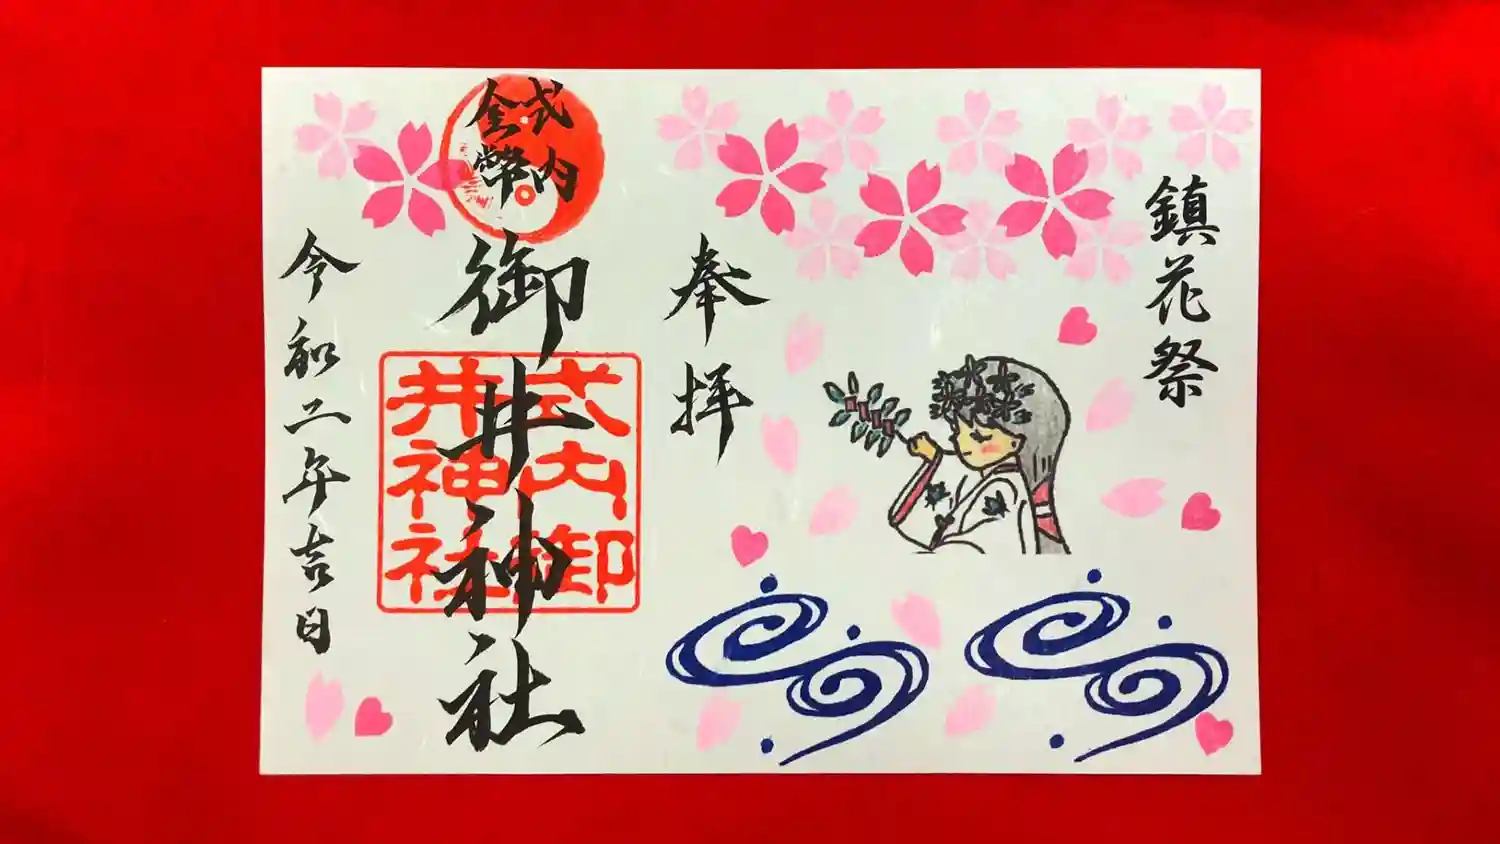 鎮花祭
奉拝
式内
金幣
御井神社
式内御
井神社
令和二年吉日